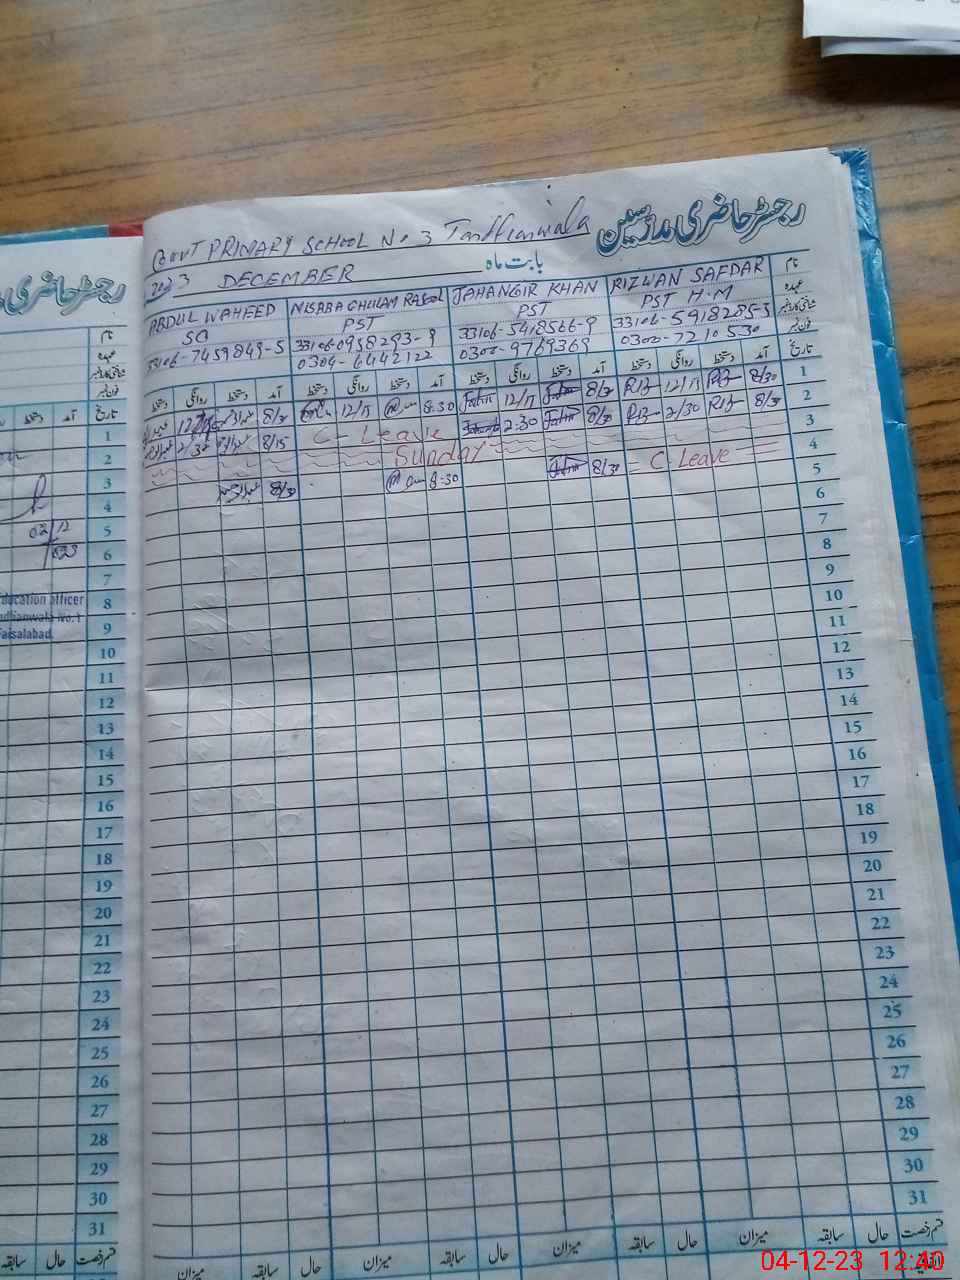 رجسٹر حاضری مدرسین
GOVT PRIMARY SCHOOL No 3 Tandlianwala
بابت ماہ DECEMBER 2023
نام RIZWAN SAFDAR JAHANGIR KHAN MISBAH GHULAM RASOOL ABDUL WAHEED
عہدہ PST H.M PST PST
33106-5918285-3 33106-5418566-9 33106-0958293-9 33106-7459849-5
0300-7210530 0300-9769369 0304-6442122
تاریخ آمد دستخط روانگی دستخط آمد دستخط روانگی دستخط آمد دستخط روانگی دستخط آمد دستخط روانگی دستخط
1 8/30 12/15 8/30 12/15 8:30 12/15 8/30
2 8/30 2/30 8/30 2:30 C-Leave 8/15 2/30
3 Sunday
4 C-Leave 8/30 8-30 8/30
5
6
7
8
9
10
11
12
13
14
15
16
17
18
19
20
21
22
23
24
25
26
27
28
29
30
31
حال سابقہ میزان حال سابقہ میزان حال سابقہ میزان حال سابقہ میزان
رجسٹر حاضری
نام
عہدہ
تاریخ آمد دستخط
1
2
3
4
5
6
7
8
9
10
11
12
13
14
15
16
17
18
19
20
21
22
23
24
25
26
27
28
29
30
31
02/12
ducation officer
ndlianwala No.1
Faisalabad.
حال سابقہ
04-12-23 12:40